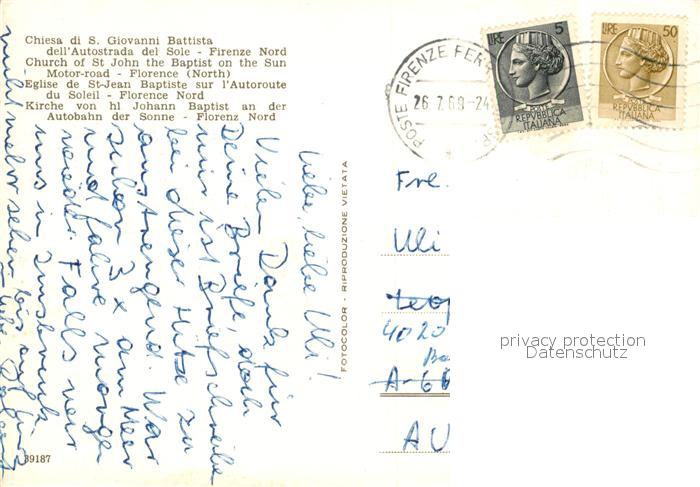 Chiesa di S. Giovanni Battista
dell'Autostrada del Sole - Firenze Nord
Church of St John the Baptist on the Sun
Motor-road - Florence (North)
Eglise de St-Jean Baptiste sur l'Autoroute
du Soleil - Florence Nord
Kirche von hl Johann Baptist an der
Autobahn der Sonne - Florenz Nord
Liebe, liebe Uli!
Vielen Dank für
Deine Briefe, doch
mir ist Briefschreiben
bei dieser Hitze zu
anstrengend. War
schon 3 x am Meer
und fahre morgen
wieder. Falls wir
uns in Innsbruck
nicht mehr sehen, bis
39187
FOTOCOLOR - RIPRODUZIONE VIETATA
POSTE FIRENZE FER
26.7.69-24
LIRE 5
POSTE
REPVBBLICA
ITALIANA
LIRE 50
POSTE
REPVBBLICA
ITALIANA
Frl.
Uli
Leop
4020
A-6
AU
privacy protection
Datenschutz